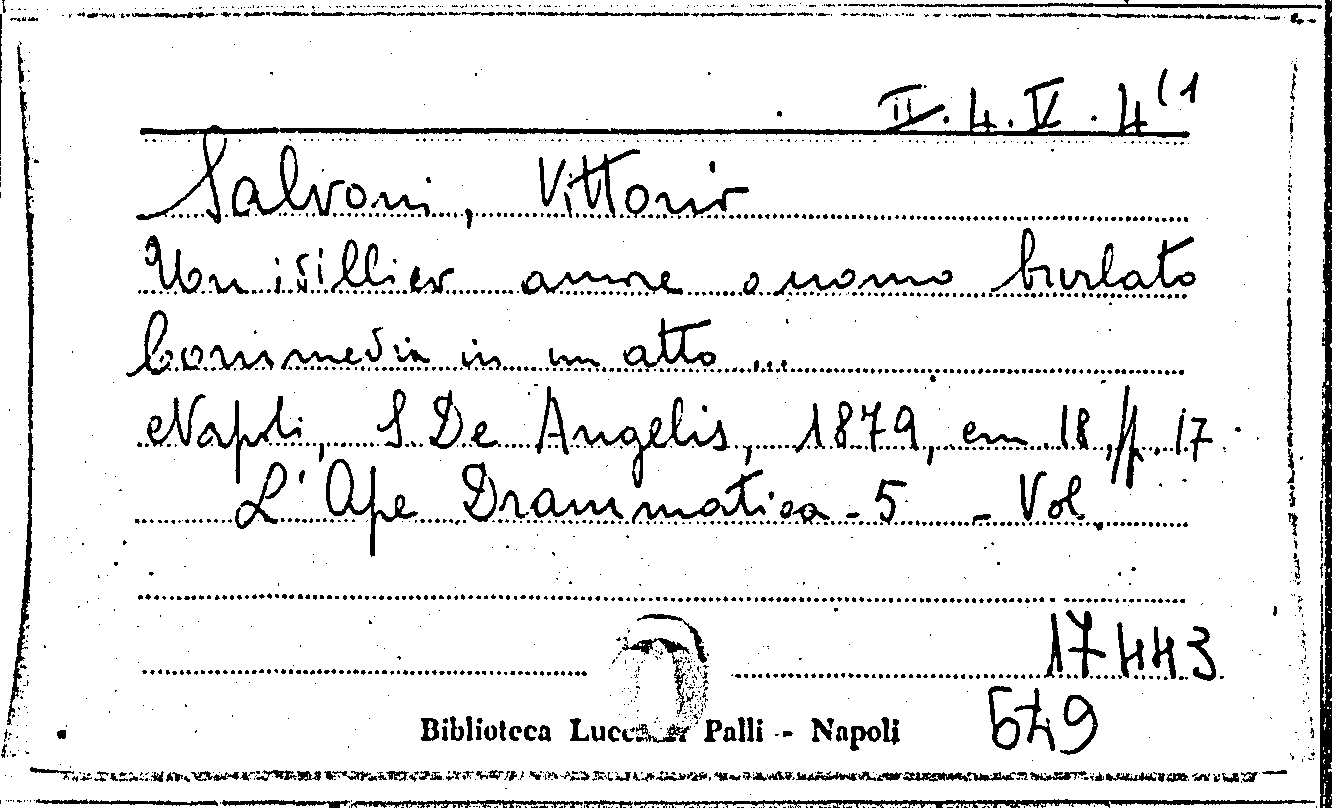 II. 4. V. 4 (1
Salvoni, Vittorio
Un amore o uomo burlato
Commedia in un atto ...
Napoli, S De Angelis, 1879, em 18, p. 17
L'Ape Drammatica - 5 - Vol.
17443
649
Biblioteca Palli - Napoli